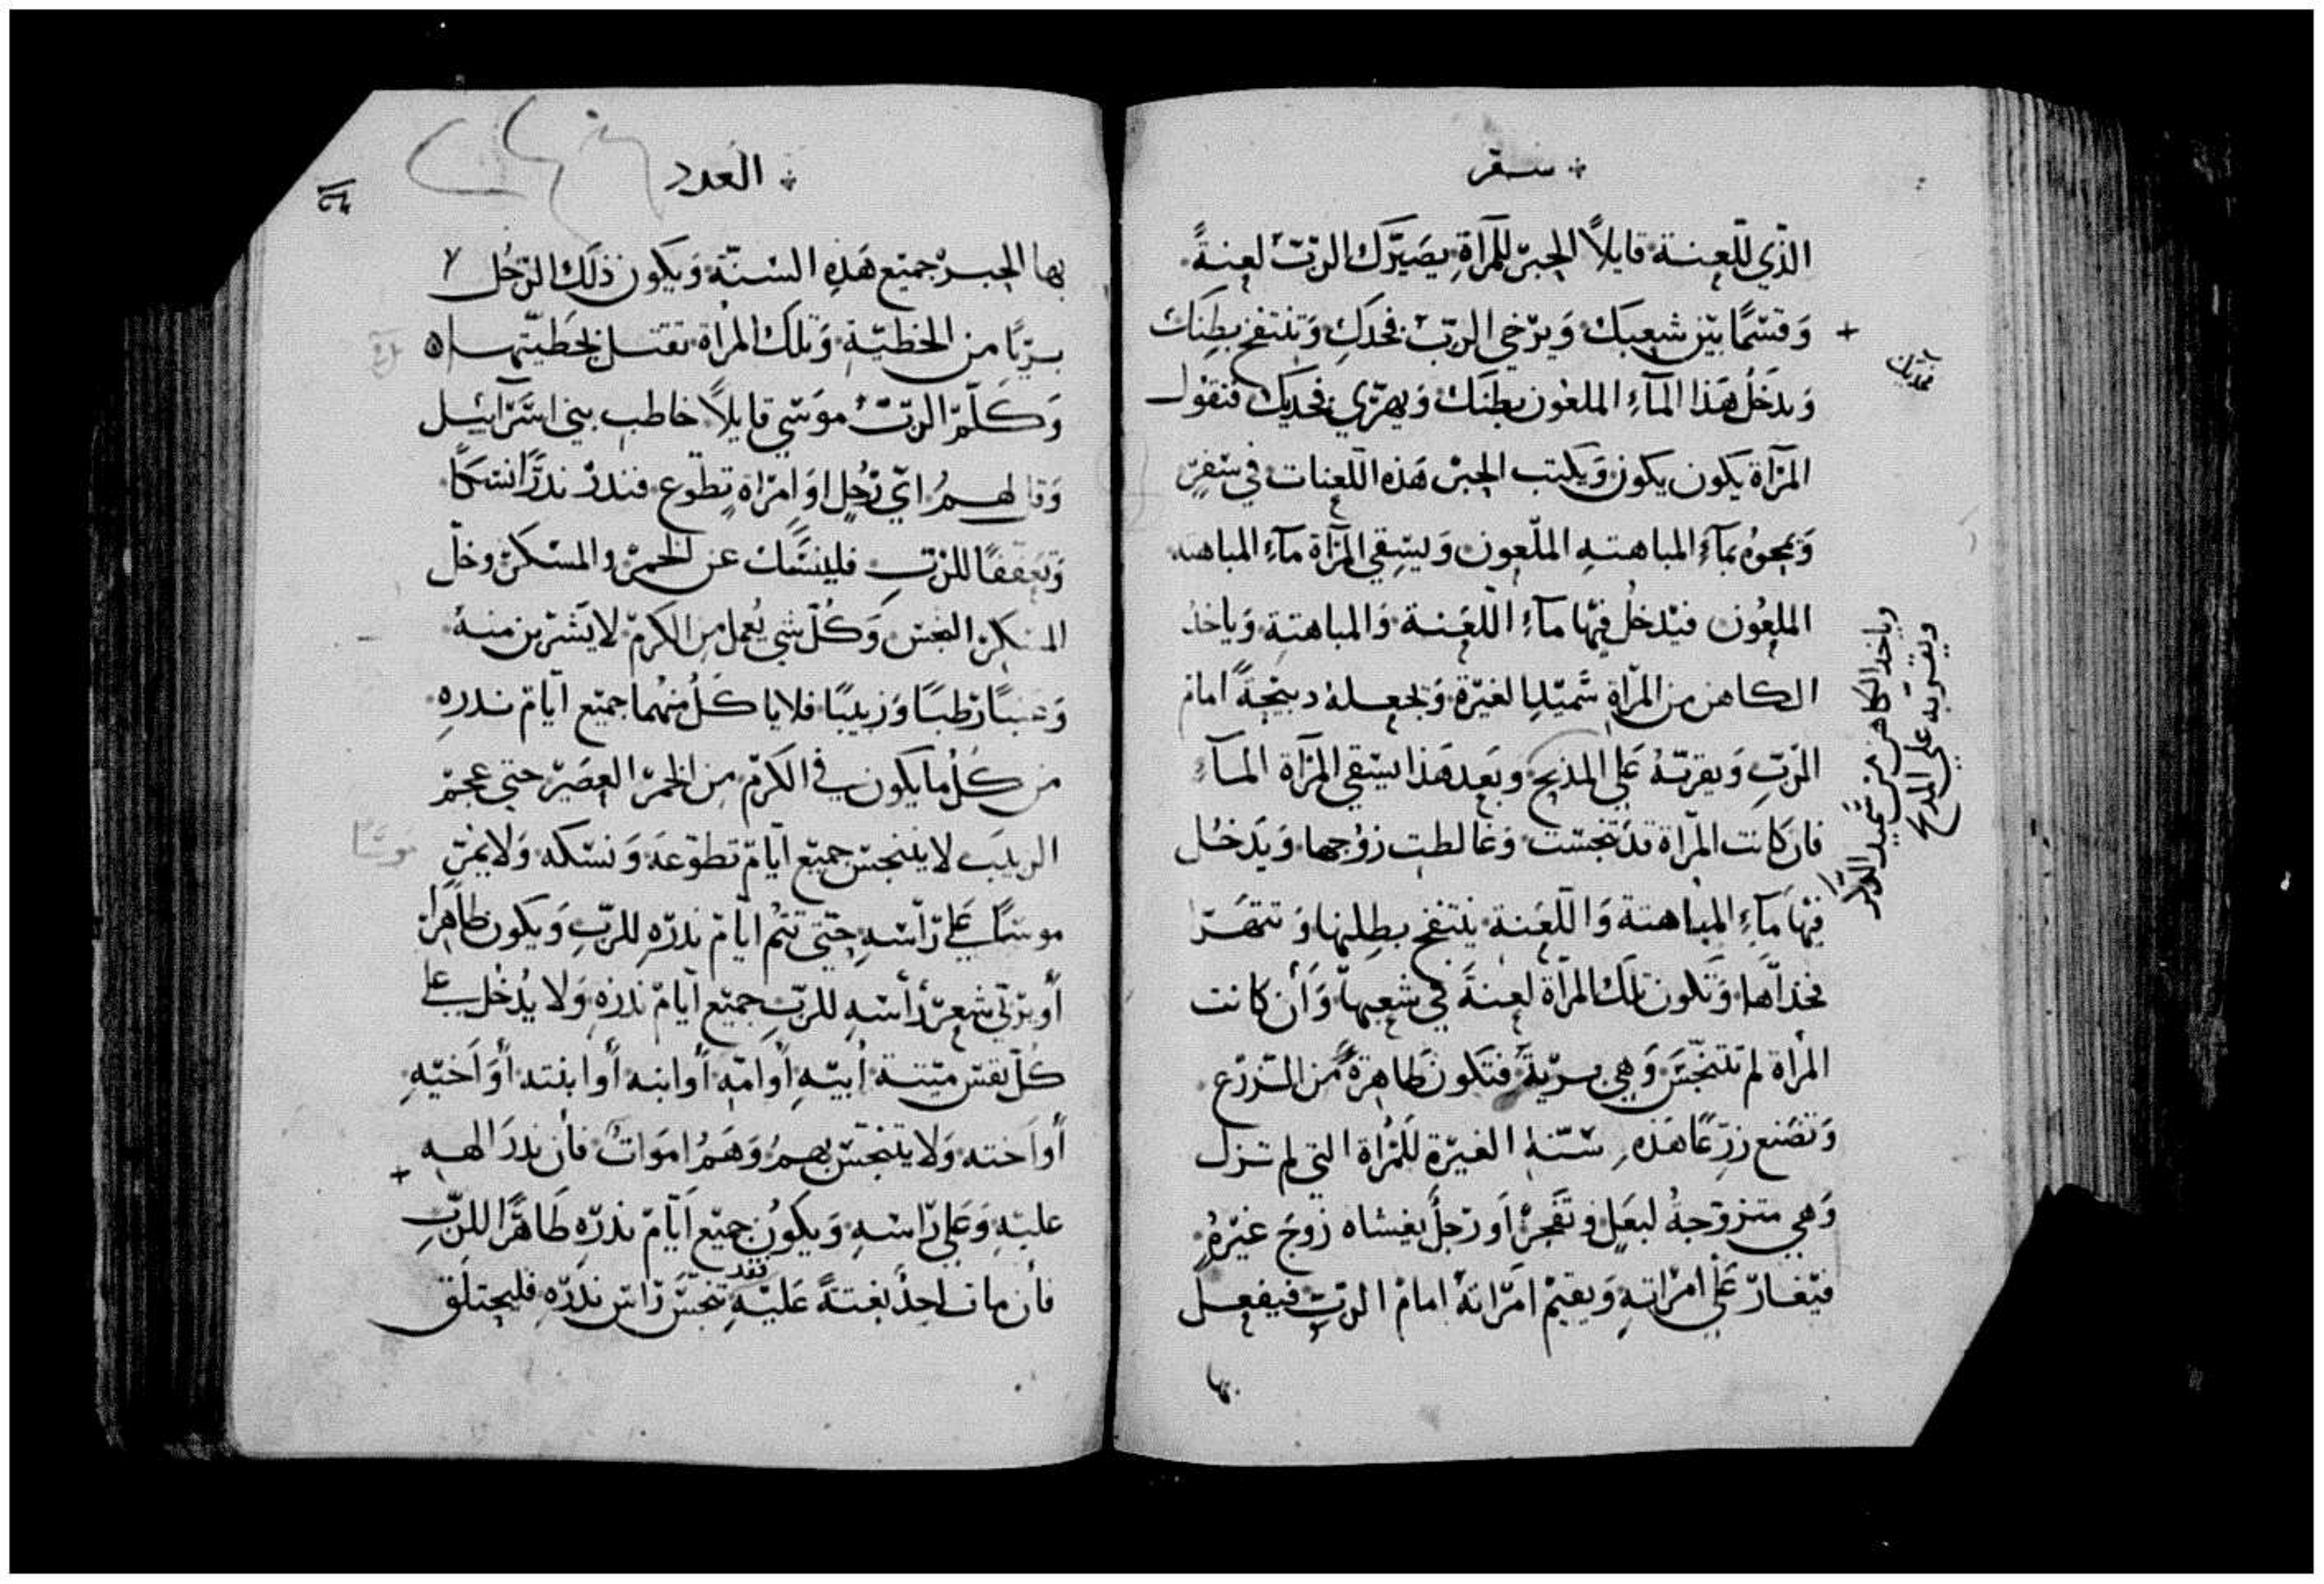 سفر
الذّي للّعنة قايلاً الحبر للمرآةِ يصَيّرَك الربّ لعنةً
وَقسَمًا بيَن شعبك وَيرَخي الربّ فخدَكِ وَتنتفخ بطِنَك
فخديك
وَيدَخُل هَذا المآءِ الملعُون بطِنَك وَيهرّي فخديَك فتقول
المرَآة يكون يكون وَيكتب الحبر هَذه اللّعنات في سَفرٍ
وَيمحوهُ بمآءِ المباهتهِ الملّعون وَيسَقِي المرَآة مآءِ المباهته
الملعُون فيَدخلُ فيَها مآءِ اللّعَنة وَالمباهتةِ وَياخدُ
الكاهن من المرّاةِ سَميَد الغيَرة وَيجعلهُ دبيَحةً امام
الرّبِ وَيقربّهُ عَلي المذبح وبَعد هَذا يسَقي المرَآة المآءِ
وياخد الكاهن من سَميد الدكر
ويقربه علي المدبح
فان كاَنت المرّاة قدَ تنجسَت وَغالطت زوُجها وَيدَخُل
فيَها مَآءِ المباهتة وَاللّعَنة ينتفخ بطِنها وَتتهَرّا
فخذآها وَتَكون تلَك المرآة لعنةَ في شعبهاّ وَأن كانت
المرأة لم تتَنجّسَ وَهي بريّةَ فتَكونَ طاهرةً من الزّرع
وَتصَنع زرعًا هَذهِ سَنّة الغيَرة للَمرُاة التي لم تزل
وَهي متزوّجةُ لبعَلٍ وتَفجرُ اَو رَجلُ يغشاه زوُجَ غيَرهُ
فيَغارّ عَلي امرَاتهِ وَيقيَم امَرّاتهُ امامَ الربّ فيفعل
بها
العدد
بها الحبر جميَع هَذهِ السَنّة وَيَكون ذلَك الرّجُل
برّيًا من الخطيّة وَتلَك المرُاة تقتل بخَطيّتها
وَكَلّم الربّ موَسَي قايلاً خاطب بني اسَرّآئيل
وَقل لهمُ ايّ رَجُلٍ اوَ امِرَاة تِطَوع فنَدر ندرًا نسَكًا
وَتعَففًا للرّبِ فلينسَّك عن الخمر والمسَكر وخلّ
المسكر النجس وَكُلّ شي يُعمل من الكرم لا يَشَرب منهُ
وَعنبًا رَطبَا وَزبيبًا فلا ياكَلُ منهُما جميَع ايّام ندرهِ
من كَلُ ما يكون في الكرَم من الخمَر العصَير حتي عجم
الزبيَب لا يتنجسَ جميَع ايّام تطوّعهَ وَنسَكه وَلا يمُرّ
موسَاً علي رّاسَه حتّي تتُم ايّام ندرّهِ للربّ وَيكون طاهرًا
موسَاً
أو يرَبّي شعر رَأسَهِ للربّ جميَع ايّامَ ندرَهِ وَلا يدُخُل علي
كلّ نفس ميَتة أبيَهِ أوَ امّه أوَ ابنه أوَ ابنته أوَ اَخيَهِ
أوَ اَخته وَلا يتنجسَ بهم وَهَمُ امَوات فأن ندرَ الههِ
عليَهِ وَعَلي رّاسَهِ وَيكَون جميَع اَيّام ندرّه طَاهرًا للربّ
فأن مات احدُ بغتةً عَليَهِ فقد تنجسَّ رّاسَ ندَرّهِ فليحتلَق